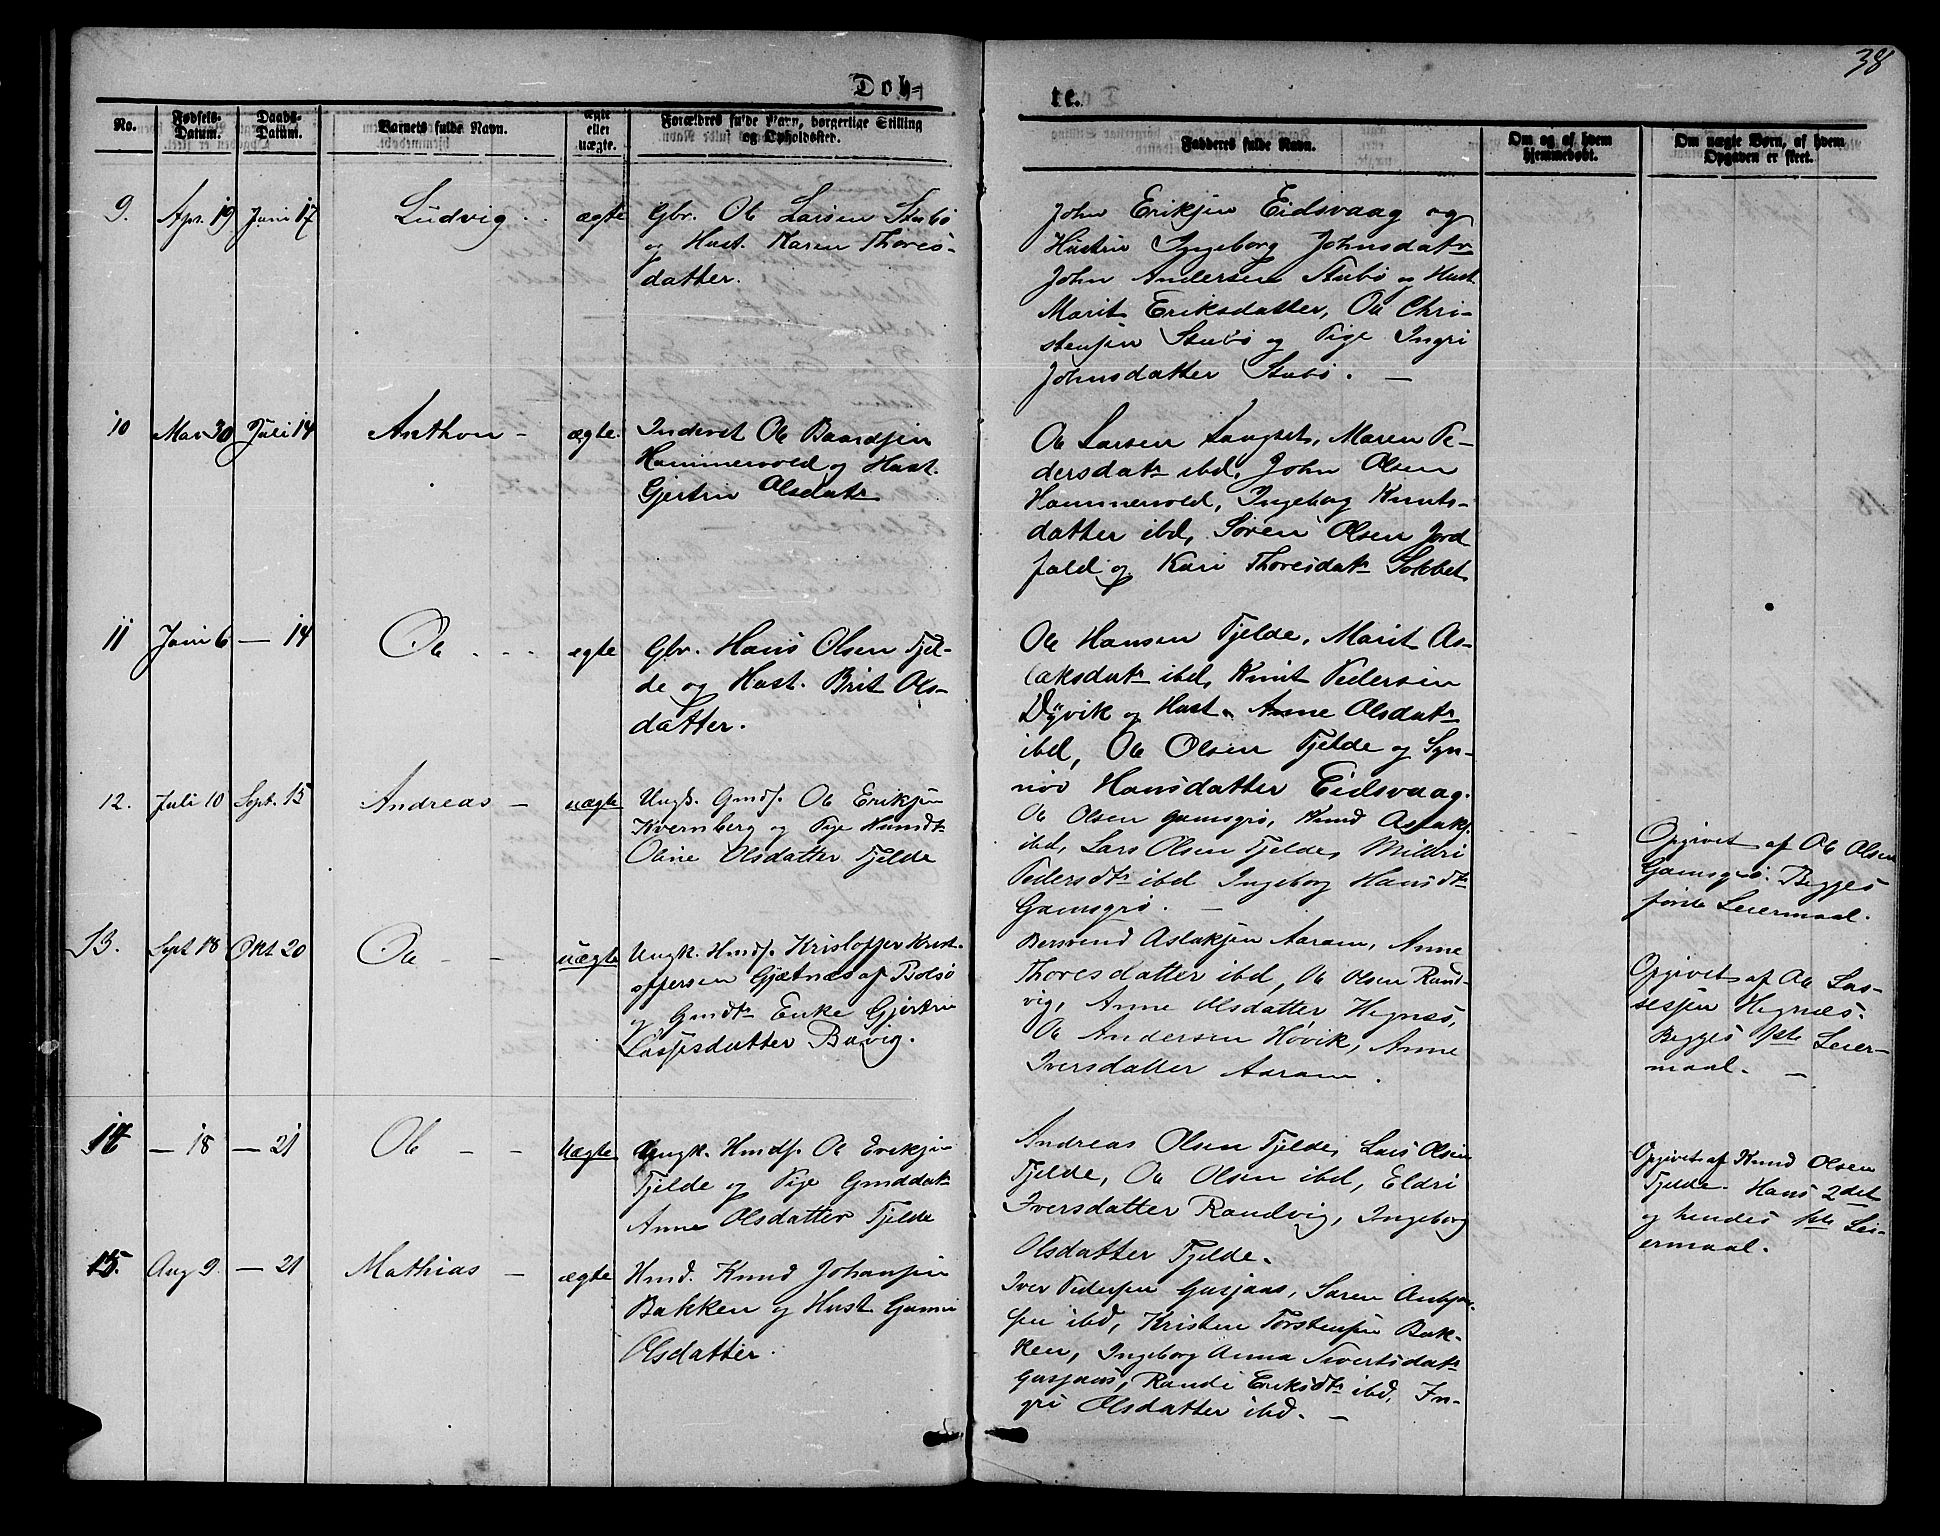 38
Døb-
te.
No.
Fødsels-
Datum.
Daabs-
Datum.
Barnets fulde Navn.
ægte
eller
uægte.
Forældres fulde Navn, borgerlige Stilling
og Opholdssted.
Fadderes fulde Navn.
Om og af hvem
hjemmedøbt.
Om uægte Børn, af hvem
Opgaven er skeet.
9.
Apr. 19
Juni 17
Ludvig
ægte
Gbr. Ole Larsen Stubø
og Hust. Karen Thores-
datter.
John Eriksen Eidsvaag og
Hustru Ingeborg Johnsdatr
John Andersen Stubø og Hust.
Marit Eriksdatter, Ole Chri-
stensen Stubø og Pige Ingri
Johnsdatter Stubø. —
10
Mai 30
Juli 14
Anthon -
ægte.
Inderst Ole Baardsen
Hammervold og Hust.
Gjertru Olsdatr
Ole Larsen Langset, Maren Pe-
dersdatr ibd, John Olsen
Hammervold, Ingeborg Knuts-
datter ibd, Søren Olsen Jord-
fald og Kari Thoresdatr
11
Juni 6
— 14
Ole
egte
Gbr. Hans Olsen Fjel-
de og Hust. Brit Ols-
datter.
Ole Hansen Fjelde, Marit As-
laksdatr ibd, Knut Pedersen
Dyvik og Hust. Anne Olsdatr
ibd, Ole Olsen Fjelde og Syn-
növ Hansdatter Eidsvaag.
12.
Juli 10
Sept. 15
Andreas -
uægte
Ungk. Gmds. Ole Eriksen
Kvernberg og Pige Hmmdtr
Oline Olsdatter Fjelde
Ole Olsen Gamsgrø, Knud Aslaks.
ibd, Lars Olsen Fjelde, Mildri
Pedersdtr ibd Ingeborg Hansdtr
Gamsgrø. —
Opgivet af Ole Olsen
Gamsgrø. Begges
første Leiermaal.
13.
Sept 18
Okt 20
Ole - -
uægte
Ungk. Hmds. Kristoffer Krist-
offersen Gjætnæs af Bolsø
og Gmdtr Enke Gjertru
Lassesdatter Buvig.
Bersvend Aslaksen Aaram, Anne
Thoresdatter ibd, Ole Olsen Rand-
vig, Anne Olsdatter Hegnæs,
Ole Andersen Høvik, Anne
Iversdatter Aaram.
Opgivet af Ole Las-
sesen Hegnæs.
Begges 1ste Leier-
maal. —
14
— 18
— 21
Ole - -
Uægte
Ungk. Hmds. Ole Eriksen
Fjelde og Pige Gmddatr
Anne Olsdatter Fjelde
Andreas Olsen Fjelde, Lars Olsen
Fjelde, Ole Olsen ibd, Eldri
Iversdatter Randvig, Ingeborg
Olsdatter Fjelde.
Opgivet af Knud Olsen
Fjelde. Hans 2det
og hendes 1ste Lei-
ermaal.
15.
Aug 9
— 21
Mathias -
ægte
Hmd. Knud Johansen
Bakken og Hust Guni
Olsdatter.
Iver Pedersen Gusjaas, Søren
sen ibd, Kristen Torstensen Bak-
ken, Ingeborg Anna Sivertsdatr
Gusjaas, Randi Eriksdtr ibd, In-
gri Olsdatter ibd. —